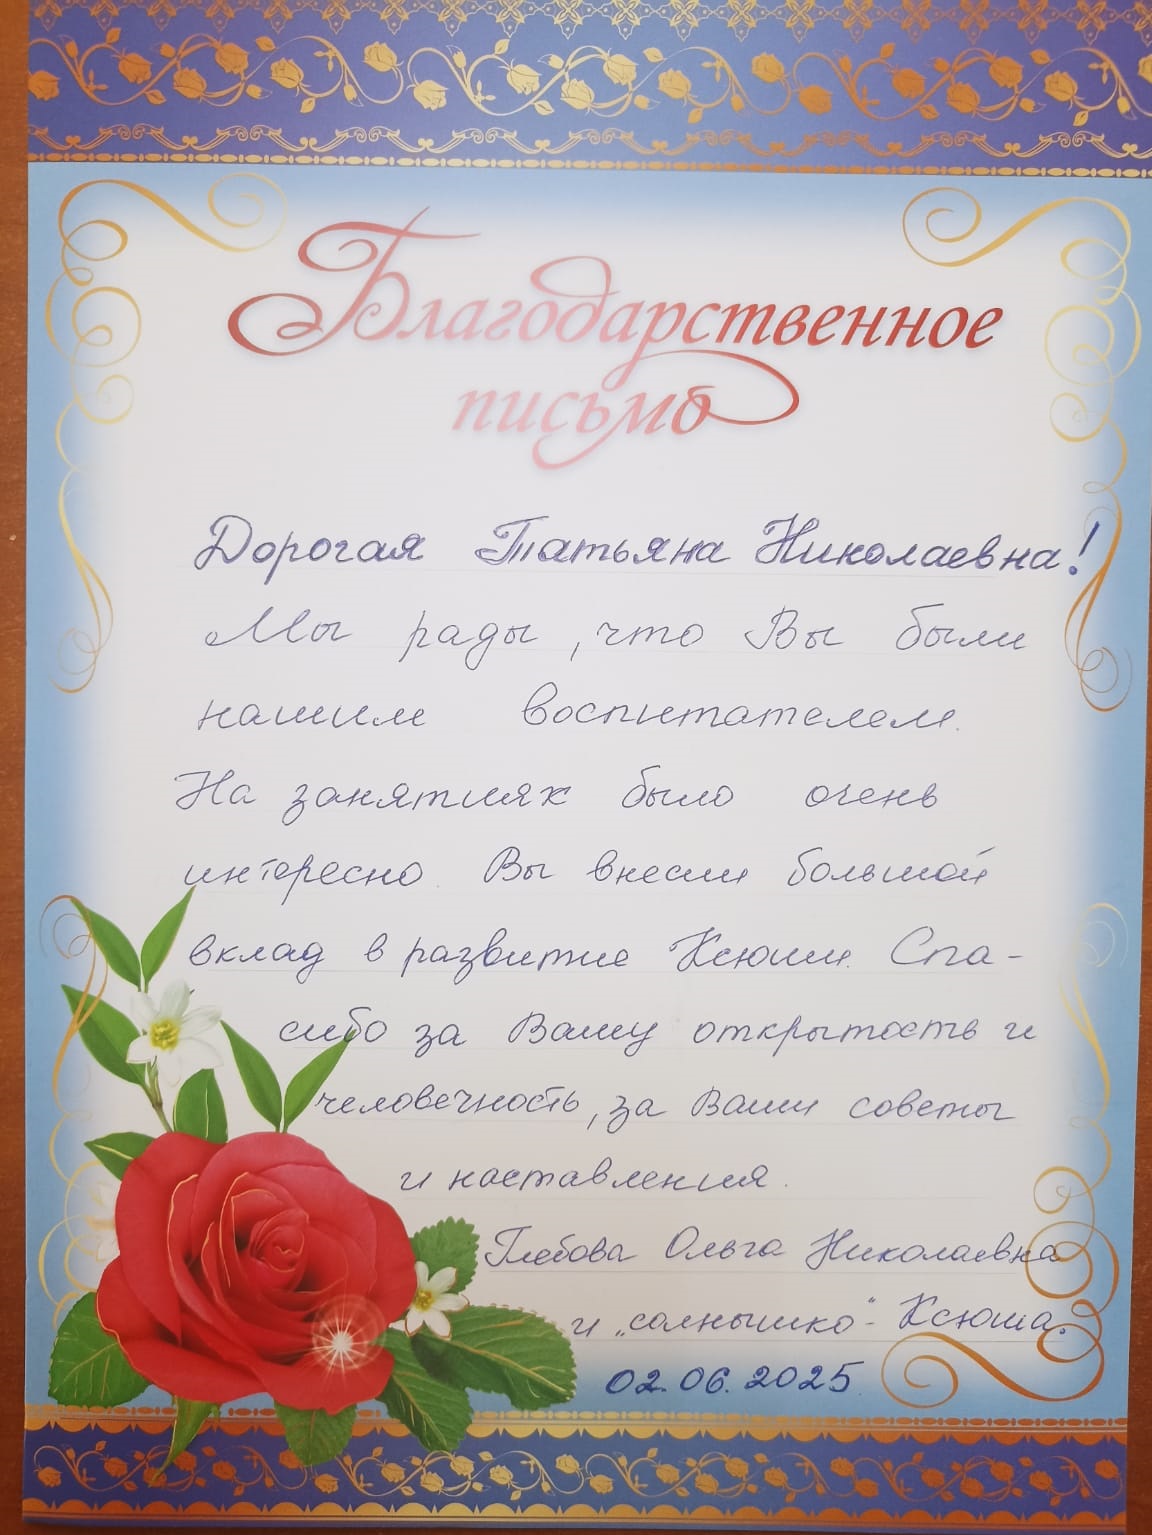 Благодарственное
письмо
Дорогая Татьяна Николаевна!
Мы рады, что Вы были
нашим воспитателем.
На занятиях было очень
интересно. Вы внесли большой
вклад в развитие Ксюши. Спа-
сибо за Вашу открытость и
человечность, за Ваши советы
и наставления.
Глебова Ольга Николаевна
и „солнышко" - Ксюша.
02.06.2025